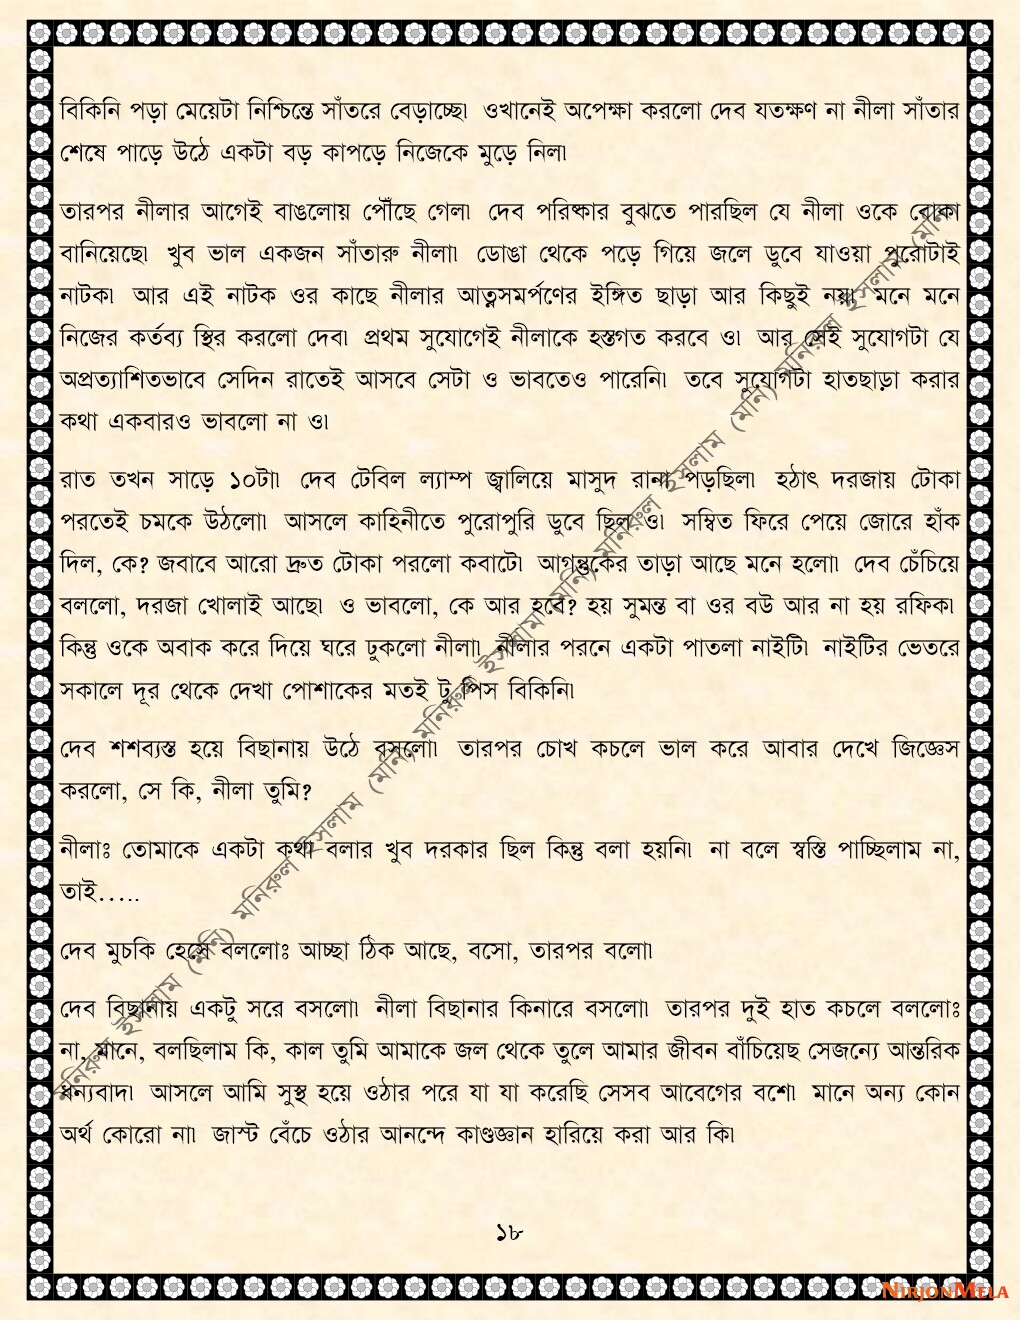 বিকিনি পড়া মেয়েটা নিশ্চিন্তে সাঁতরে বেড়াচ্ছে৷ ওখানেই অপেক্ষা করলো দেব যতক্ষণ না নীলা সাঁতার
শেষে পাড়ে উঠে একটা বড় কাপড়ে নিজেকে মুড়ে নিল৷
তারপর নীলার আগেই বাঙলোয় পৌঁছে গেল৷ দেব পরিষ্কার বুঝতে পারছিল যে নীলা ওকে বোকা
বানিয়েছে৷ খুব ভাল একজন সাঁতারু নীলা৷ ডোঙা থেকে পড়ে গিয়ে জলে ডুবে যাওয়া পুরোটাই
নাটক৷ আর এই নাটক ওর কাছে নীলার আত্নসমর্পণের ইঙ্গিত ছাড়া আর কিছুই নয়৷ মনে মনে
নিজের কর্তব্য স্থির করলো দেব৷ প্রথম সুযোগেই নীলাকে হস্তগত করবে ও৷ আর সেই সুযোগটা যে
অপ্রত্যাশিতভাবে সেদিন রাতেই আসবে সেটা ও ভাবতেও পারেনি৷ তবে সুযোগটা হাতছাড়া করার
কথা একবারও ভাবলো না ও৷
রাত তখন সাড়ে ১০টা৷ দেব টেবিল ল্যাম্প জ্বালিয়ে মাসুদ রানা পড়ছিল৷ হঠাৎ দরজায় টোকা
পরতেই চমকে উঠলো৷ আসলে কাহিনীতে পুরোপুরি ডুবে ছিল ও৷ সম্বিত ফিরে পেয়ে জোরে হাঁক
দিল, কে? জবাবে আরো দ্রুত টোকা পরলো কবাটে৷ আগন্তুকের তাড়া আছে মনে হলো৷ দেব চেঁচিয়ে
বললো, দরজা খোলাই আছে৷ ও ভাবলো, কে আর হবে? হয় সুমন্ত বা ওর বউ আর না হয় রফিক৷
কিন্তু ওকে অবাক করে দিয়ে ঘরে ঢুকলো নীলা৷ নীলার পরনে একটা পাতলা নাইটি৷ নাইটির ভেতরে
সকালে দূর থেকে দেখা পোশাকের মতই টু পিস বিকিনি৷
দেব শশব্যস্ত হয়ে বিছানায় উঠে বসলো৷ তারপর চোখ কচলে ভাল করে আবার দেখে জিজ্ঞেস
করলো, সে কি, নীলা তুমি?
নীলাঃ তোমাকে একটা কথা বলার খুব দরকার ছিল কিন্তু বলা হয়নি৷ না বলে স্বস্তি পাচ্ছিলাম না,
তাই…..
দেব মুচকি হেসে বললোঃ আচ্ছা ঠিক আছে, বসো, তারপর বলো৷
দেব বিছানায় একটু সরে বসলো৷ নীলা বিছানার কিনারে বসলো৷ তারপর দুই হাত কচলে বললোঃ
না, মানে, বলছিলাম কি, কাল তুমি আমাকে জল থেকে তুলে আমার জীবন বাঁচিয়েছ সেজন্যে আন্তরিক
ধন্যবাদ৷ আসলে আমি সুস্থ হয়ে ওঠার পরে যা যা করেছি সেসব আবেগের বশে৷ মানে অন্য কোন
অর্থ কোরো না৷ জাস্ট বেঁচে ওঠার আনন্দে কাণ্ডজ্ঞান হারিয়ে করা আর কি৷
মনিরুল ইসলাম (মনি) মনিরুল ইসলাম (মনি) মনিরুল ইসলাম (মনি) মনিরুল ইসলাম (মনি) মনিরুল ইসলাম (মনি)
১৮
NIRJONMELA